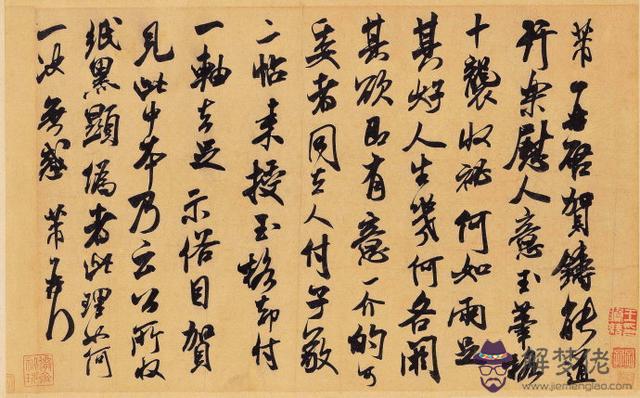 芾再啓賀鑄能道
行樂慰人意玉筆格
十襲收祕何如兩足
其好人生幾何各闕
其欲即有意一介的可
委者同去人付子敬
二帖來授玉格却付
一軸去足示俗目賀
見此中本乃云公所收
紙黑顯偽者此理如何
一決無惑芾
解梦佬
www.jiemenglao.com